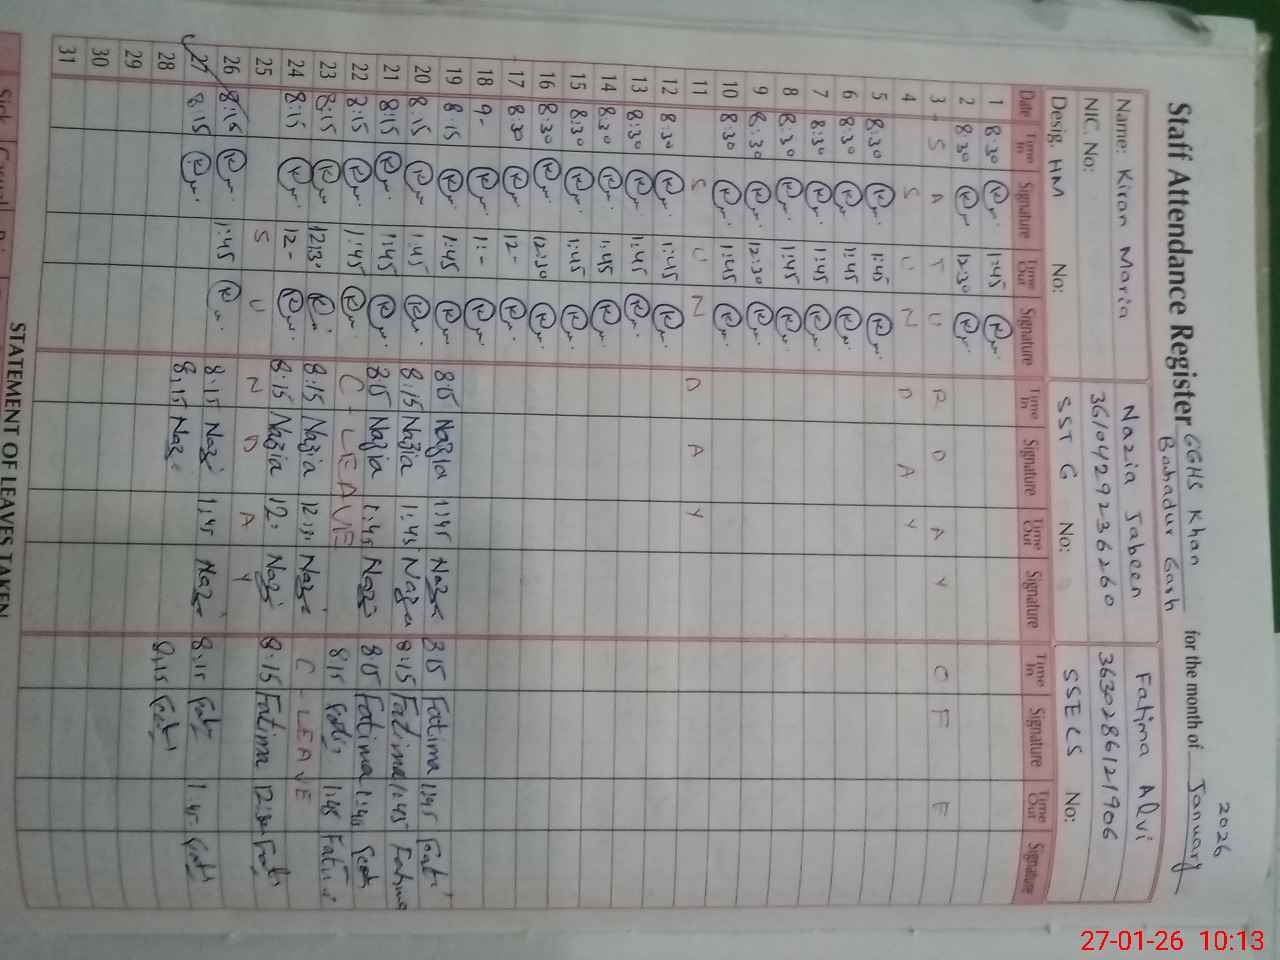 2026
Staff Attendance Register GGHS Khan Bahadur Garh for the month of January
Name: Kiran Maria Nazia Jabeen Fatima Alvi
NIC. No: 3610429236260 3630286121906
Desig. HM No: SST G No: SSE CS No:
Date Time In Signature Time Out Signature Time In Signature Time Out Signature Time In Signature Time Out Signature
1 8:30 1:45
2 8:30 12:30
3 S A T U R D A Y O F F
4 S U N D A Y
5 8:30 1:45
6 8:30 1:45
7 8:30 1:45
8 8:30 1:45
9 8:30 12:30
10 8:30 1:45
11 S U N D A Y
12 8:30 1:45
13 8:30 1:45
14 8:30 1:45
15 8:30 1:45
16 8:30 12:30
17 8:30 12-
18 9- 1:-
19 8:15 1:45 815 Nazia 1:45 815 Fatima 1:45
20 8:15 1:45 8:15 Nazia 1:45 8:15 Fatima 1:45 Fatima
21 8:15 1:45 815 Nazia 1:45 815 Fatima
22 8:15 1:45 C-LEAVE 815 1:45 Fatima
23 8:15 8:15 Nazia C-LEAVE
24 8:15 12- 8:15 Nazia 12: 8:15 Fatima
25 S U N D A Y
26 8:15 1:45 8:15 1:45 8:15
27 8:15 8:15 8:15
28
29
30
31
STATEMENT OF LEAVES TAKEN
Sick Casual
27-01-26 10:13